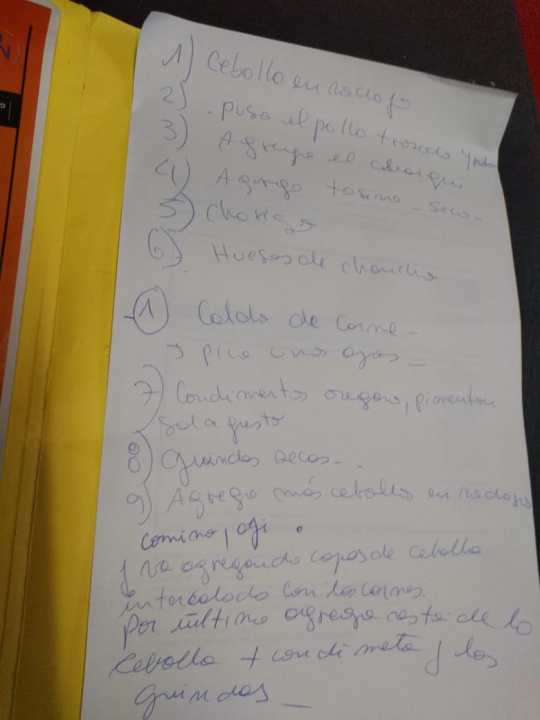 1) Cebolla en rodaja
2)
. puso el pollo trosado y
3) Agrega el charqui
4) Agrego tosino - seco -
5) Choriz
6) Huesos de chancho
1) Caldo de carne -
y pica unos ajos -
7) Condimentos oregano, pimenton
Sal a gusto
8) guindas secas - .
9) Agrego más cebolla en rodaja
comino, aji .
y va agregando capas de cebolla
intercalado con las carnes.
Por ultimo agrega resto de la
Cebolla + condimeto y las
guindas -